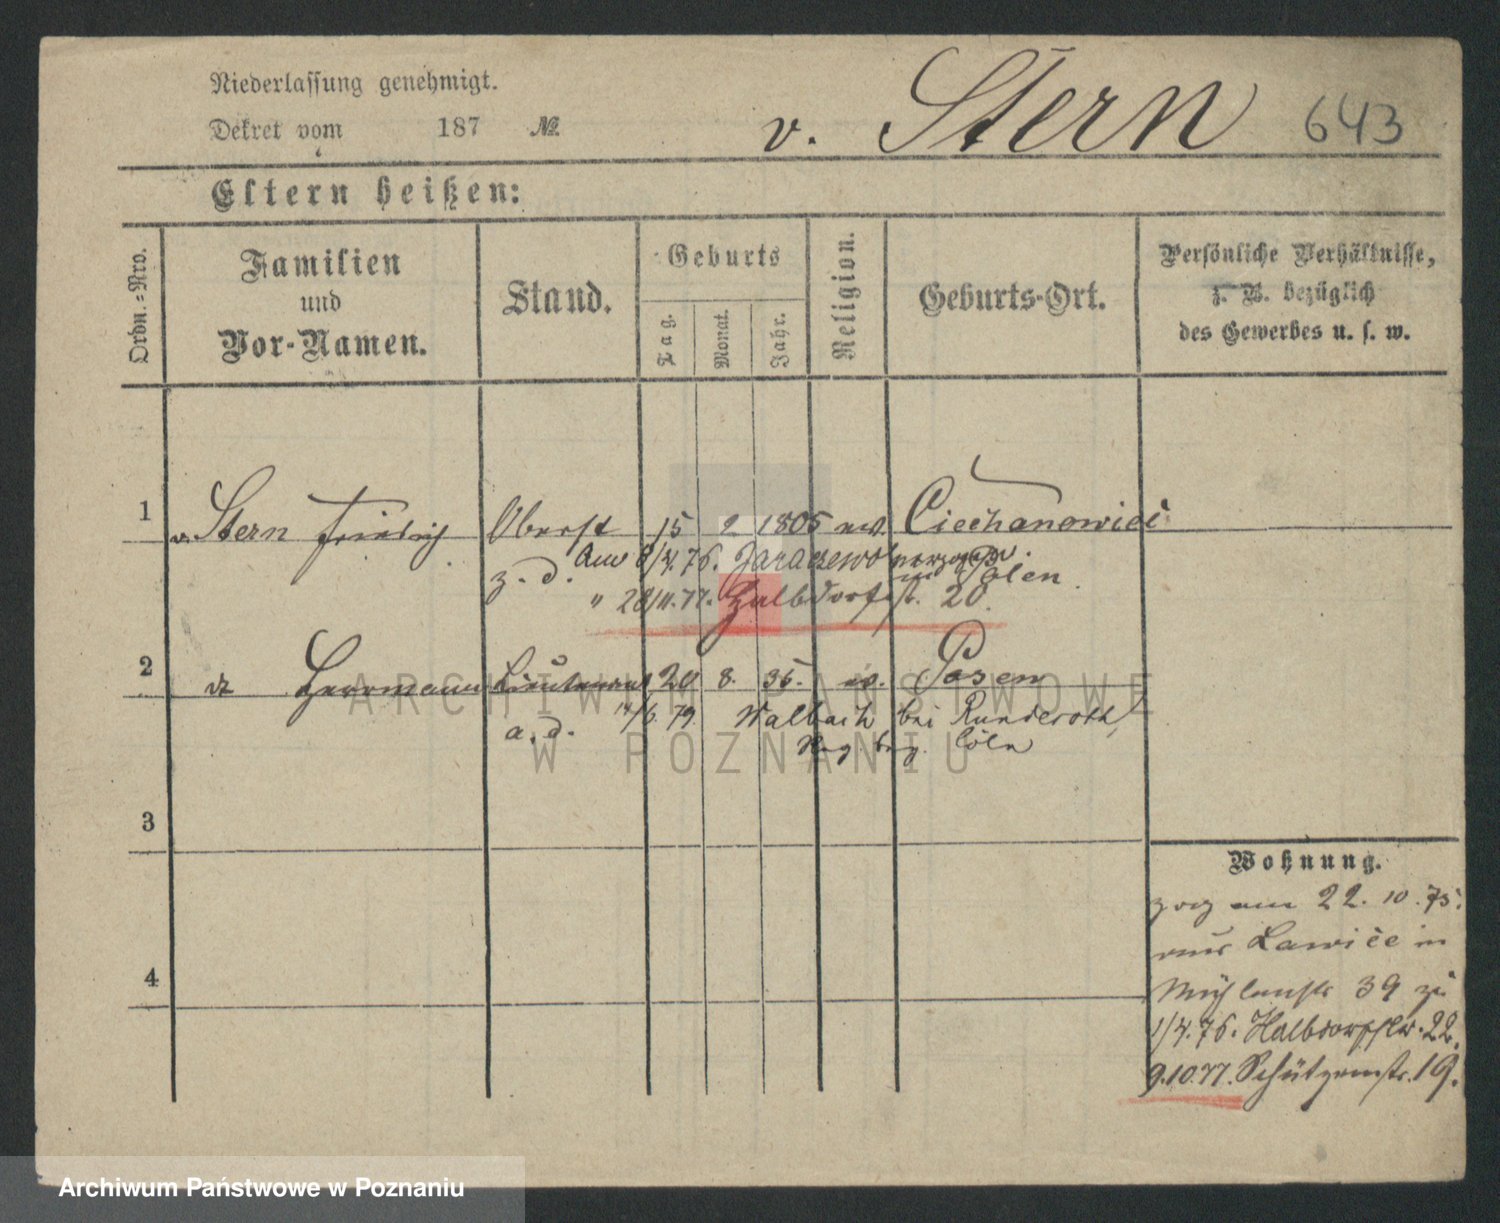 Niederlassung genehmigt.
Dekret vom 187 №
v. Stern 643
Eltern heißen:
Ordn.=Nro.
Familien
und
Vor-Namen.
Stand.
Geburts
Tag.
Monat.
Jahr.
Religion.
Geburts-Ort.
Persönliche Verhältnisse,
z. B. bezüglich
des Gewerbes u. s. w.
1 v. Stern Friedrich Oberst 15 2 1805 ev. Ciechanowiec
z. d. Am 8/4.76. Jaraczewo verzogen
in Polen.
" 28/11.77. Halbdorfstr. 20.
2 dt Herrmann Lieutenant 20 8. 35. ev. Posen
a. d. 14/6 79 Walbach bei Runderoth,
Reg bez. Cöln
3
4
Wohnung.
zog am 22. 10. 75.
aus Lawice in
Mühlenstr 39 zu
1/4.76. Halbdorfstr. 22.
9.10.77. Schützenstr. 19.
ARCHIWUM PAŃSTWOWE
W POZNANIU
Archiwum Państwowe w Poznaniu